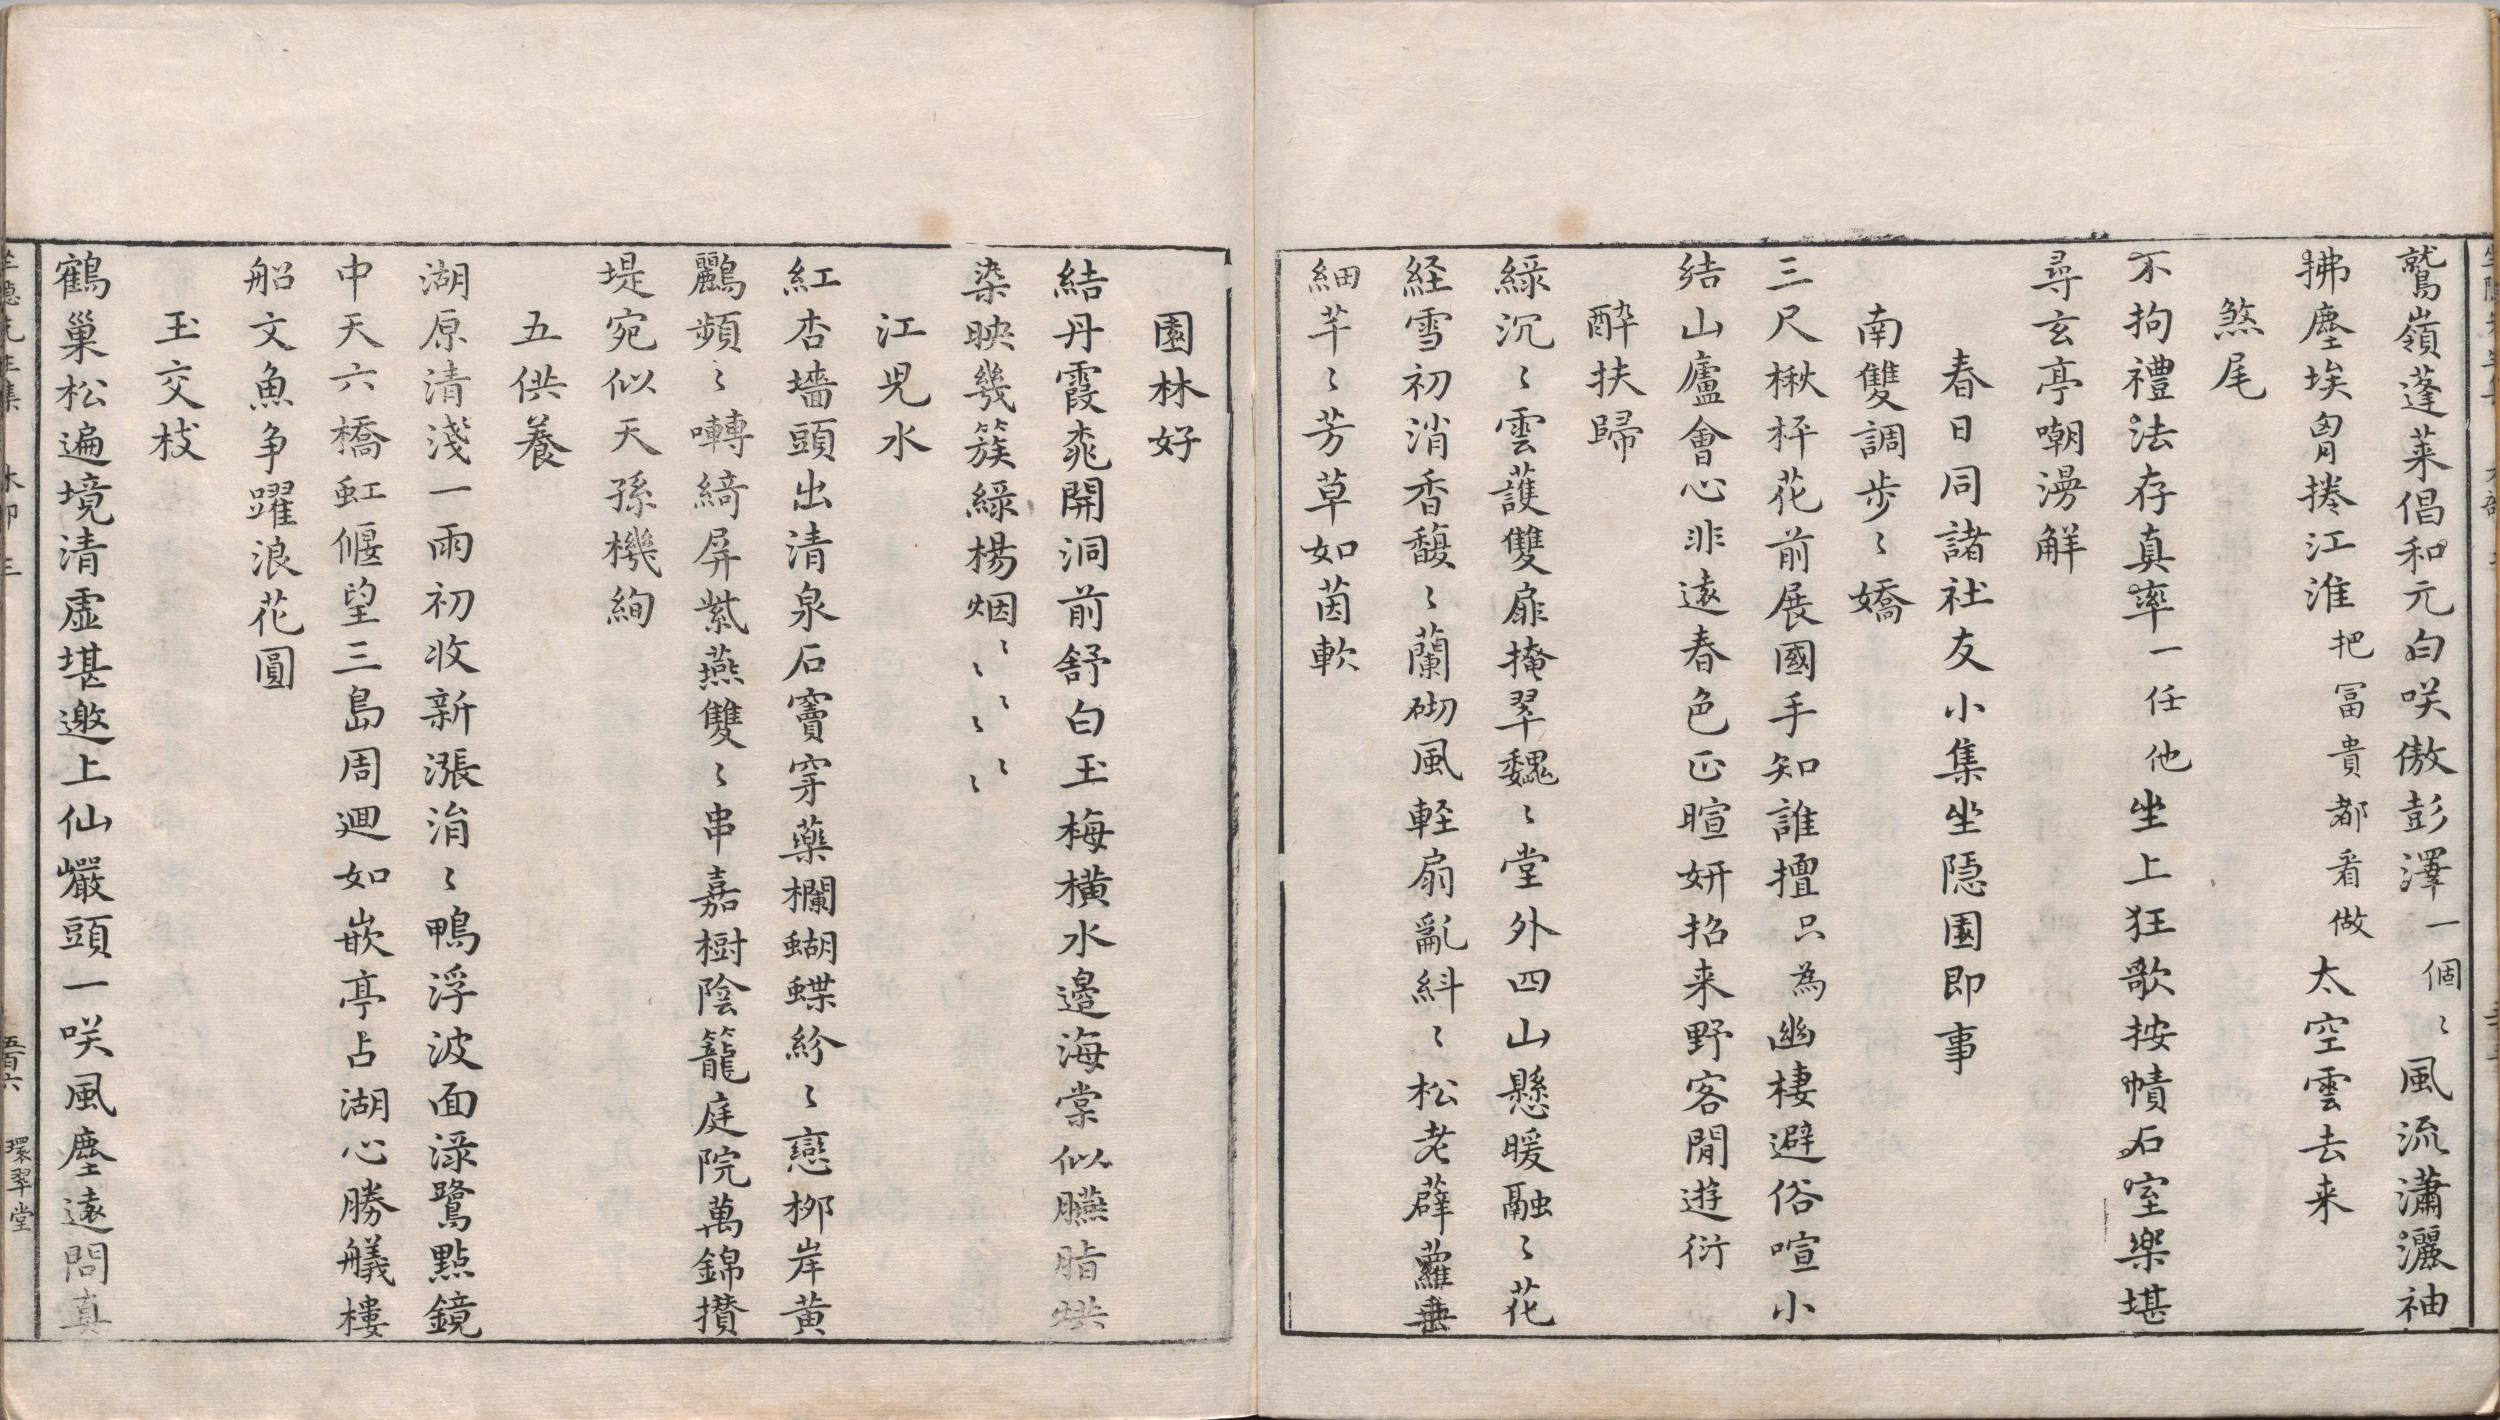 鷲嶺蓬萊倡和元白咲傲彭澤一個〻風流瀟灑袖
拂塵埃胷捲江淮把冨貴都看做太空雲去来
煞尾
不拘禮法存真率一任他坐上狂歌按幘石室楽堪
尋玄亭嘲漫觧
春日同諸社友小集坐隱園即事
南雙調步〻嬌
三尺楸枰花前展國手知誰擅只為幽棲避俗喧小
結山廬會心非遠春色正暄妍招来野客閒遊衍
醉扶歸
綠沉〻雲護雙扉掩翠巍〻堂外四山懸暖融〻花
経雪初消香馥〻蘭砌風軽扇亂紏〻松老薜蘿垂
細芊〻芳草如茵軟
園林好
結丹霞桃開洞前舒白玉梅橫水邉海棠似臙脂烘
染映幾簇綠楊烟〻〻〻〻〻〻
江兒水
紅杏墻頭出清泉石竇穿藥欄蝴蝶紛〻戀桞岸黃
鸝頻〻囀綺屏紫燕雙〻串嘉樹陰籠庭院萬錦攅
堤宛似天孫機絢
五供養
湖原清淺一雨初收新漲涓〻鴨浮波面淥鷺點鏡
中天六橋虹偃望三島周迴如嵌亭占湖心勝艤樓
船文魚争躍浪花圓
玉交枝
鶴巢松遍境清虛堪邀上仙巖頭一咲風塵遠問真
五百六
環翠堂